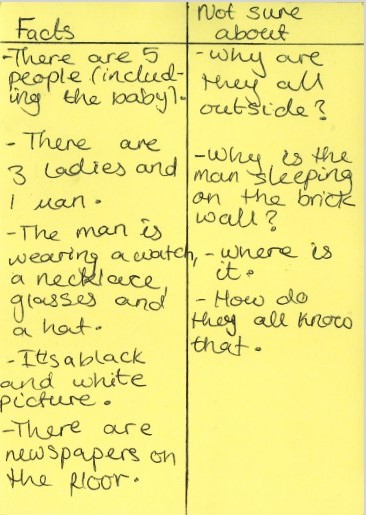 Facts
-There are 5
people (includ-
ing the baby).
- There are
3 ladies and
1 man.
-The man is
wearing a watch,
a necklace,
glasses and
a hat.
-It's a black
and white
picture.
-There are
newspapers on
the floor.
Not sure
about
-Why are
they all
outside?
-Why is the
man sleeping
on the brick
wall?
-where is
it.
- How do
they all know
that.